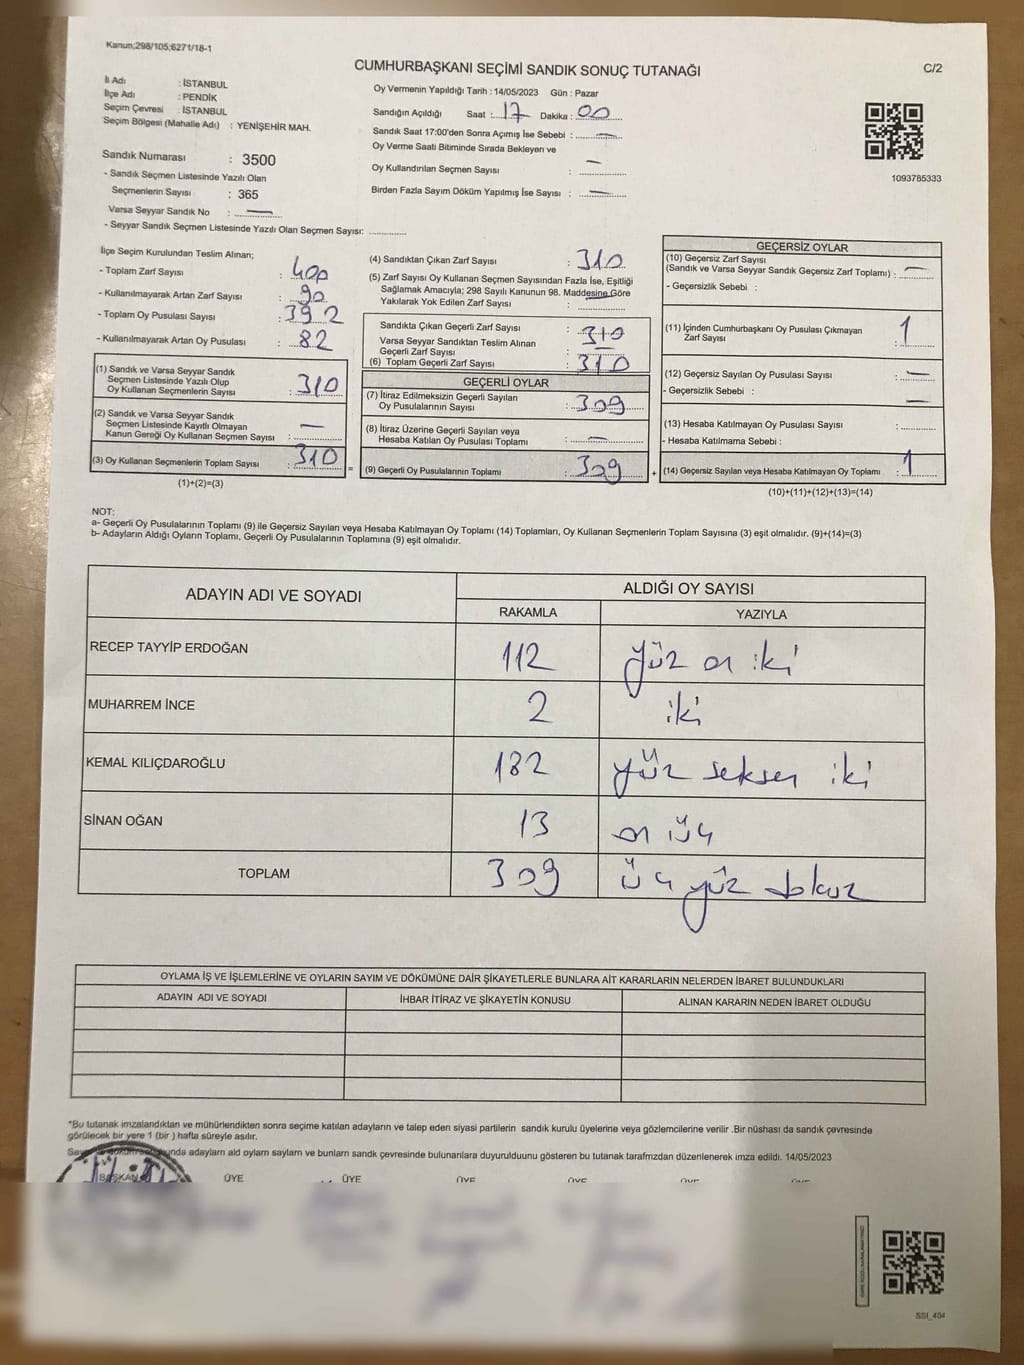 Kanun;298/105;6271/18-1
CUMHURBAŞKANI SEÇİMİ SANDIK SONUÇ TUTANAĞI
C/2
İl Adı : İSTANBUL
İlçe Adı : PENDİK
Seçim Çevresi : İSTANBUL
Seçim Bölgesi (Mahalle Adı) : YENİŞEHİR MAH.
Oy Vermenin Yapıldığı Tarih : 14/05/2023 Gün : Pazar
Sandığın Açıldığı Saat : 17 Dakika : 00
Sandık Saat 17:00'den Sonra Açımış İse Sebebi : —
Oy Verme Saati Bitiminde Sırada Bekleyen ve
Oy Kullandırılan Seçmen Sayısı : —
Birden Fazla Sayım Döküm Yapılmış İse Sayısı : —
1093785333
Sandık Numarası : 3500
- Sandık Seçmen Listesinde Yazılı Olan
Seçmenlerin Sayısı : 365
Varsa Seyyar Sandık No : —
- Seyyar Sandık Seçmen Listesinde Yazılı Olan Seçmen Sayısı: ............
İlçe Seçim Kurulundan Teslim Alınan;
- Toplam Zarf Sayısı : 400
- Kullanılmayarak Artan Zarf Sayısı : 90
- Toplam Oy Pusulası Sayısı : 392
- Kullanılmayarak Artan Oy Pusulası : 82
(1) Sandık ve Varsa Seyyar Sandık
Seçmen Listesinde Yazılı Olup
Oy Kullanan Seçmenlerin Sayısı : 310
(2) Sandık ve Varsa Seyyar Sandık
Seçmen Listesinde Kayıtlı Olmayan
Kanun Gereği Oy Kullanan Seçmen Sayısı : —
(3) Oy Kullanan Seçmenlerin Toplam Sayısı : 310
(1)+(2)=(3)
(4) Sandıktan Çıkan Zarf Sayısı : 310
(5) Zarf Sayısı Oy Kullanan Seçmen Sayısından Fazla İse, Eşitliği
Sağlamak Amacıyla; 298 Sayılı Kanunun 98. Maddesine Göre
Yakılarak Yok Edilen Zarf Sayısı : —
Sandıkta Çıkan Geçerli Zarf Sayısı : 310
Varsa Seyyar Sandıktan Teslim Alınan
Geçerli Zarf Sayısı : —
(6) Toplam Geçerli Zarf Sayısı : 310
GEÇERLİ OYLAR
(7) İtiraz Edilmeksizin Geçerli Sayılan
Oy Pusulalarının Sayısı : 309
(8) İtiraz Üzerine Geçerli Sayılan veya
Hesaba Katılan Oy Pusulası Toplamı : —
= (9) Geçerli Oy Pusulalarının Toplamı : 309
GEÇERSİZ OYLAR
(10) Geçersiz Zarf Sayısı
(Sandık ve Varsa Seyyar Sandık Geçersiz Zarf Toplamı) : —
- Geçersizlik Sebebi :
(11) İçinden Cumhurbaşkanı Oy Pusulası Çıkmayan
Zarf Sayısı : 1
(12) Geçersiz Sayılan Oy Pusulası Sayısı : —
- Geçersizlik Sebebi : —
(13) Hesaba Katılmayan Oy Pusulası Sayısı : ............
- Hesaba Katılmama Sebebi :
+ (14) Geçersiz Sayılan veya Hesaba Katılmayan Oy Toplamı : 1
(10)+(11)+(12)+(13)=(14)
NOT:
a- Geçerli Oy Pusulalarının Toplamı (9) ile Geçersiz Sayılan veya Hesaba Katılmayan Oy Toplamı (14) Toplamları, Oy Kullanan Seçmenlerin Toplam Sayısına (3) eşit olmalıdır. (9)+(14)=(3)
b- Adayların Aldığı Oyların Toplamı, Geçerli Oy Pusulalarının Toplamına (9) eşit olmalıdır.
ADAYIN ADI VE SOYADI
ALDIĞI OY SAYISI
RAKAMLA YAZIYLA
RECEP TAYYİP ERDOĞAN 112 yüz on iki
MUHARREM İNCE 2 iki
KEMAL KILIÇDAROĞLU 182 yüz seksen iki
SİNAN OĞAN 13 on üç
TOPLAM 309 üç yüz dokuz
OYLAMA İŞ VE İŞLEMLERİNE VE OYLARIN SAYIM VE DÖKÜMÜNE DAİR ŞİKAYETLERLE BUNLARA AİT KARARLARIN NELERDEN İBARET BULUNDUKLARI
ADAYIN ADI VE SOYADI İHBAR İTİRAZ VE ŞİKAYETİN KONUSU ALINAN KARARIN NEDEN İBARET OLDUĞU
*Bu tutanak imzalandıktan ve mühürlendikten sonra seçime katılan adayların ve talep eden siyasi partilerin sandık kurulu üyelerine veya gözlemcilerine verilir .Bir nüshası da sandık çevresinde
görülecek bir yere 1 (bir ) hafta süreyle asılır.
adayların ald oylarn saylarn ve bunların sandk çevresinde bulunanlara duyurulduunu gösteren bu tutanak tarafmzdan düzenlenerek imza edildi. 14/05/2023
BAŞKAN ÜYE ÜYE ÜYE ÜYE
SSI_404